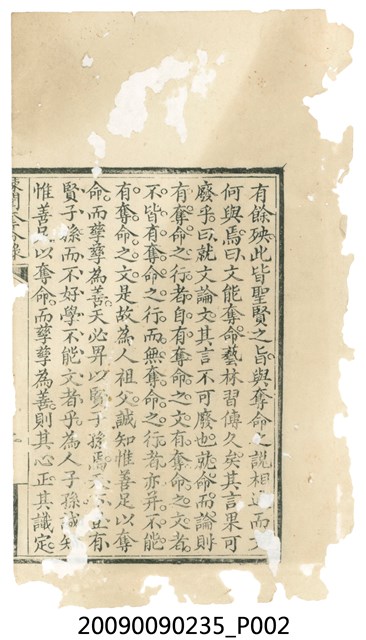 有餘殃此皆聖賢之旨與奪命之說相
何與焉曰文能奪命藝林習傳久矣其言果可
廢乎曰就文論文其言不可廢也就命而論則
有奪命之行者自有奪命之文有奪命之文者
不皆有奪命之行而無奪命之行者亦并不能
有奪命之文是故為人祖父誠知惟善足以奪
命而孳孳為善天必畀以賢子孫焉有
賢子孫而不好學不能文者乎為人子孫誠知
惟善足以奪命而孳孳為善則其心正其識定
20090090235_P002